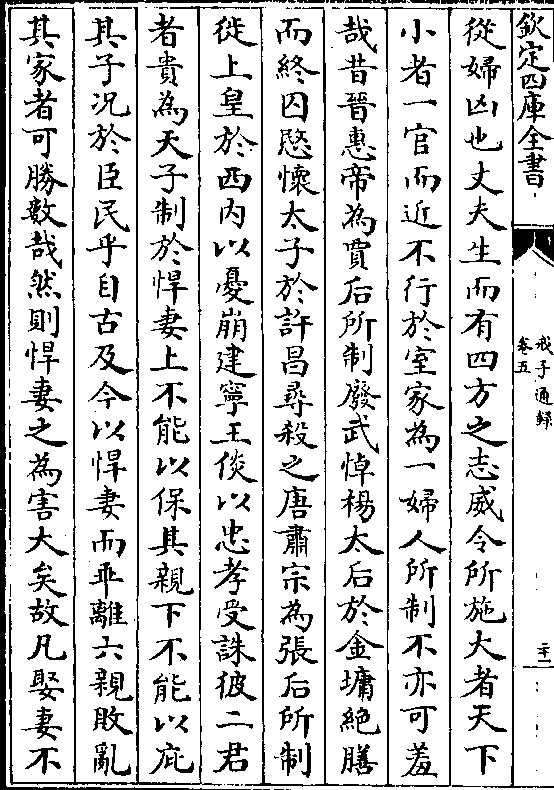 欽定四庫全書
戒子通録
卷五
二十一
從婦凶也丈夫生而有四方之志威令所施大者天下
小者一官而近不行於室家為一婦人所制不亦可羞
哉昔晉惠帝為賈后所制廢武悼楊太后於金墉絶膳
而終囚愍懷太子於許昌尋殺之唐肅宗為張后所制
徙上皇於西内以憂崩建寧王倓以忠孝受誅彼二君
者貴為天子制於悍妻上不能以保其親下不能以庇
其子况於臣民乎自古及今以悍妻而乖離六親敗亂
其家者可勝數哉然則悍妻之為害大矣故凡娶妻不